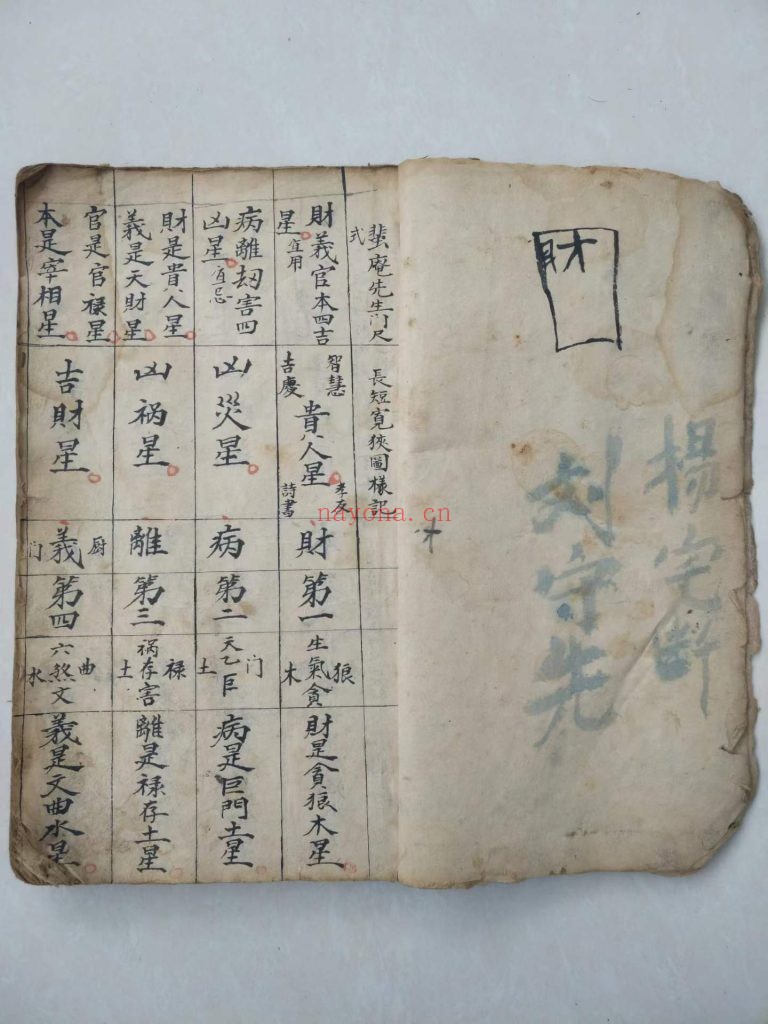 財
楊宅斷
刘守先
蜚庵先生门尺
式
長短寬狹圖樣記
財義官本四吉
星宜用
智慧
吉慶
貴人星
孝友
詩書
財
第一
生氣貪
狼
木
財是貪狼木星
病離刼害四
凶星宜忌
凶災星
病
第二
天乙巨
门
土
病是巨門土星
財是貴人星
義是天財星
凶祸星
離
第三
祸存害
禄
土
離是禄存土星
官是官禄星
本是宰相星
吉財星
厨
義
门
第四
六煞文
曲
水
義是文曲水星
nayona.cn